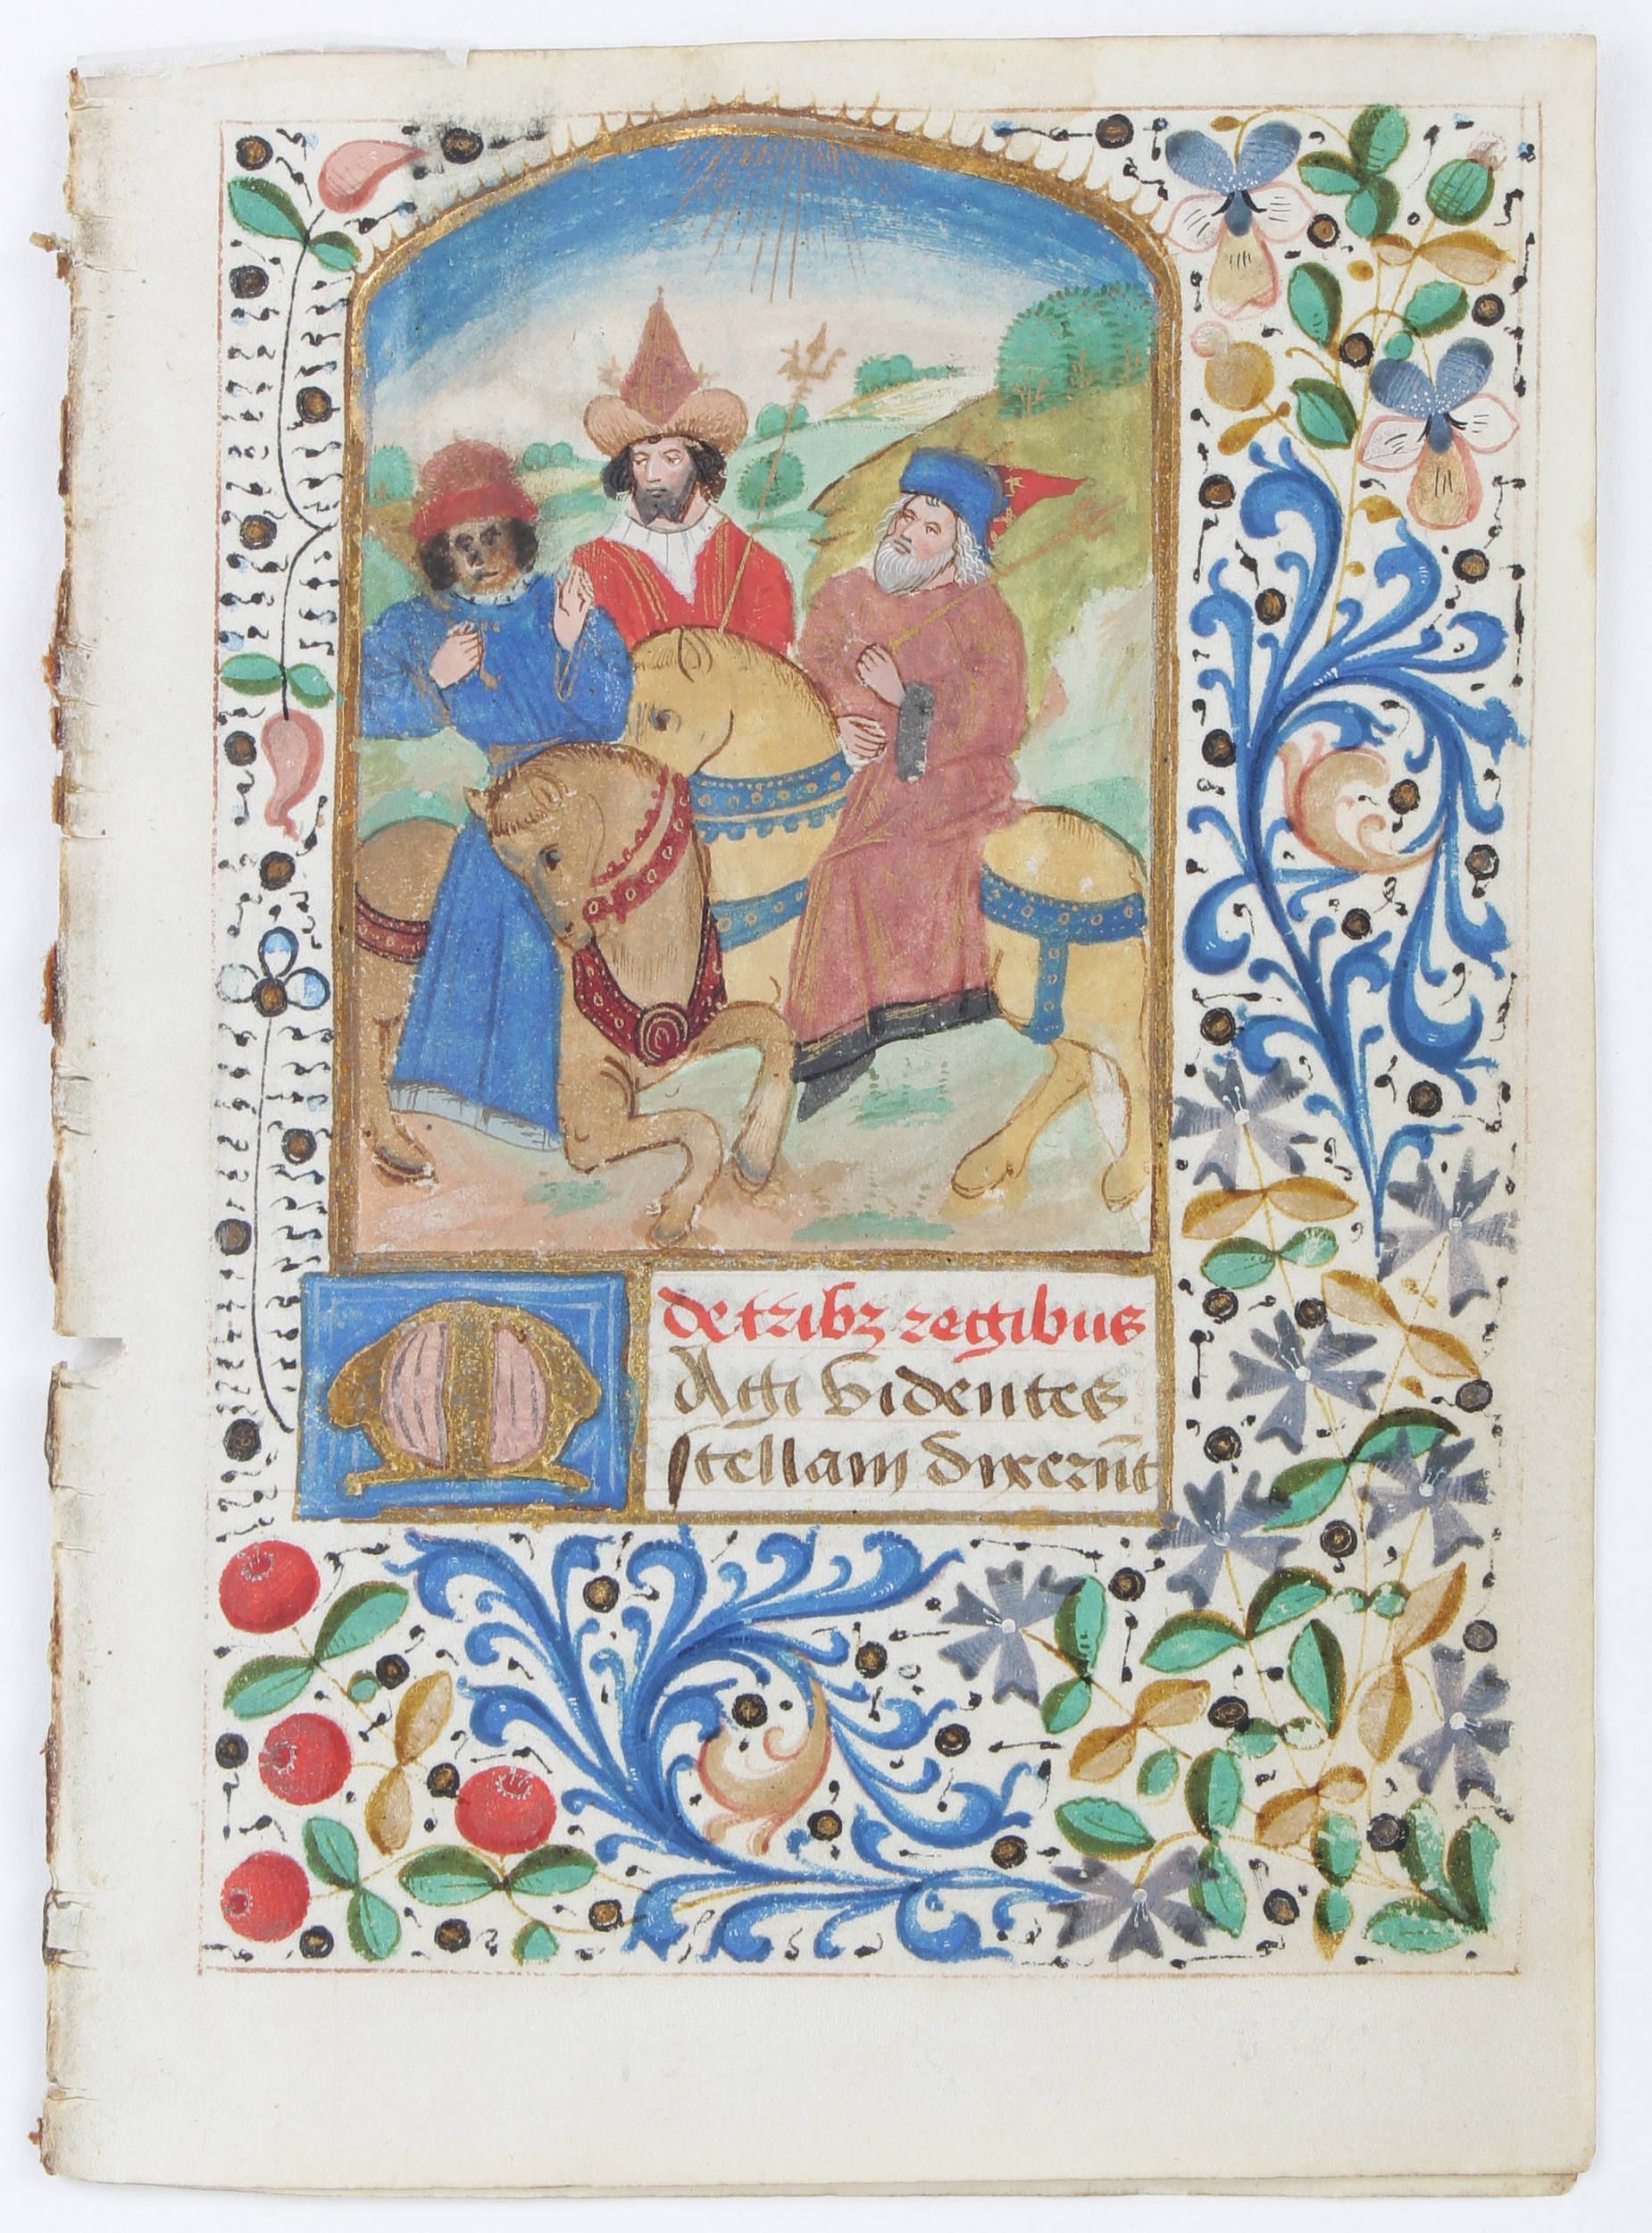 de tribꝫ regibus
MAgi videntes
stellam dixerūt